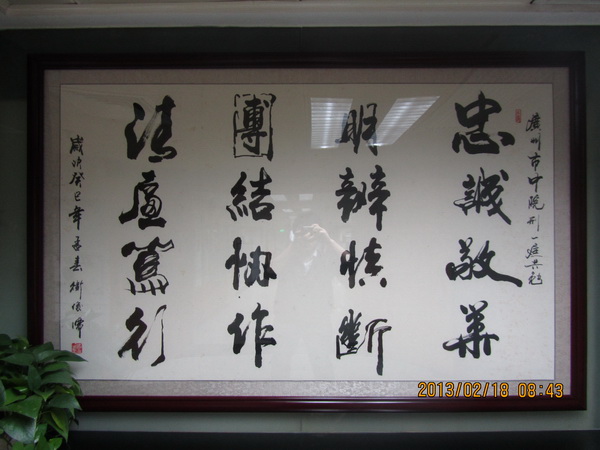 廣州市中院刑一庭共勉
忠誠敬業
明辨慎斷
團結協作
清廉篤行
歲次癸巳年孟春
2013/02/18 08:43